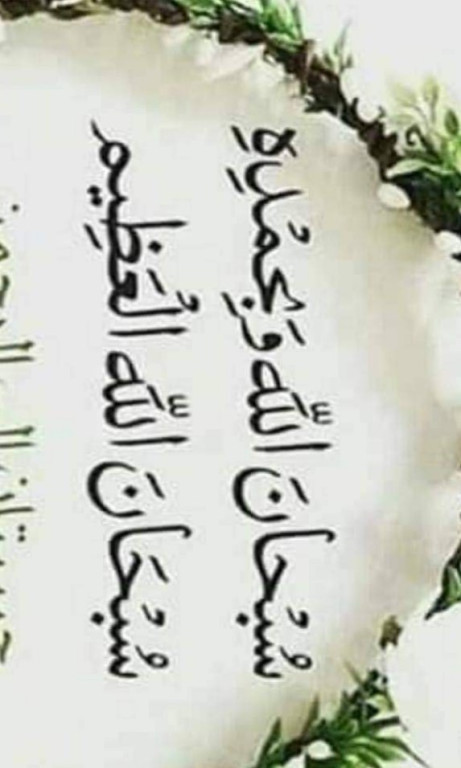 سُبْحانَ اللّه وَبِحمُدِهِ
سُبْحَانَ اللّه الْعَظِيم